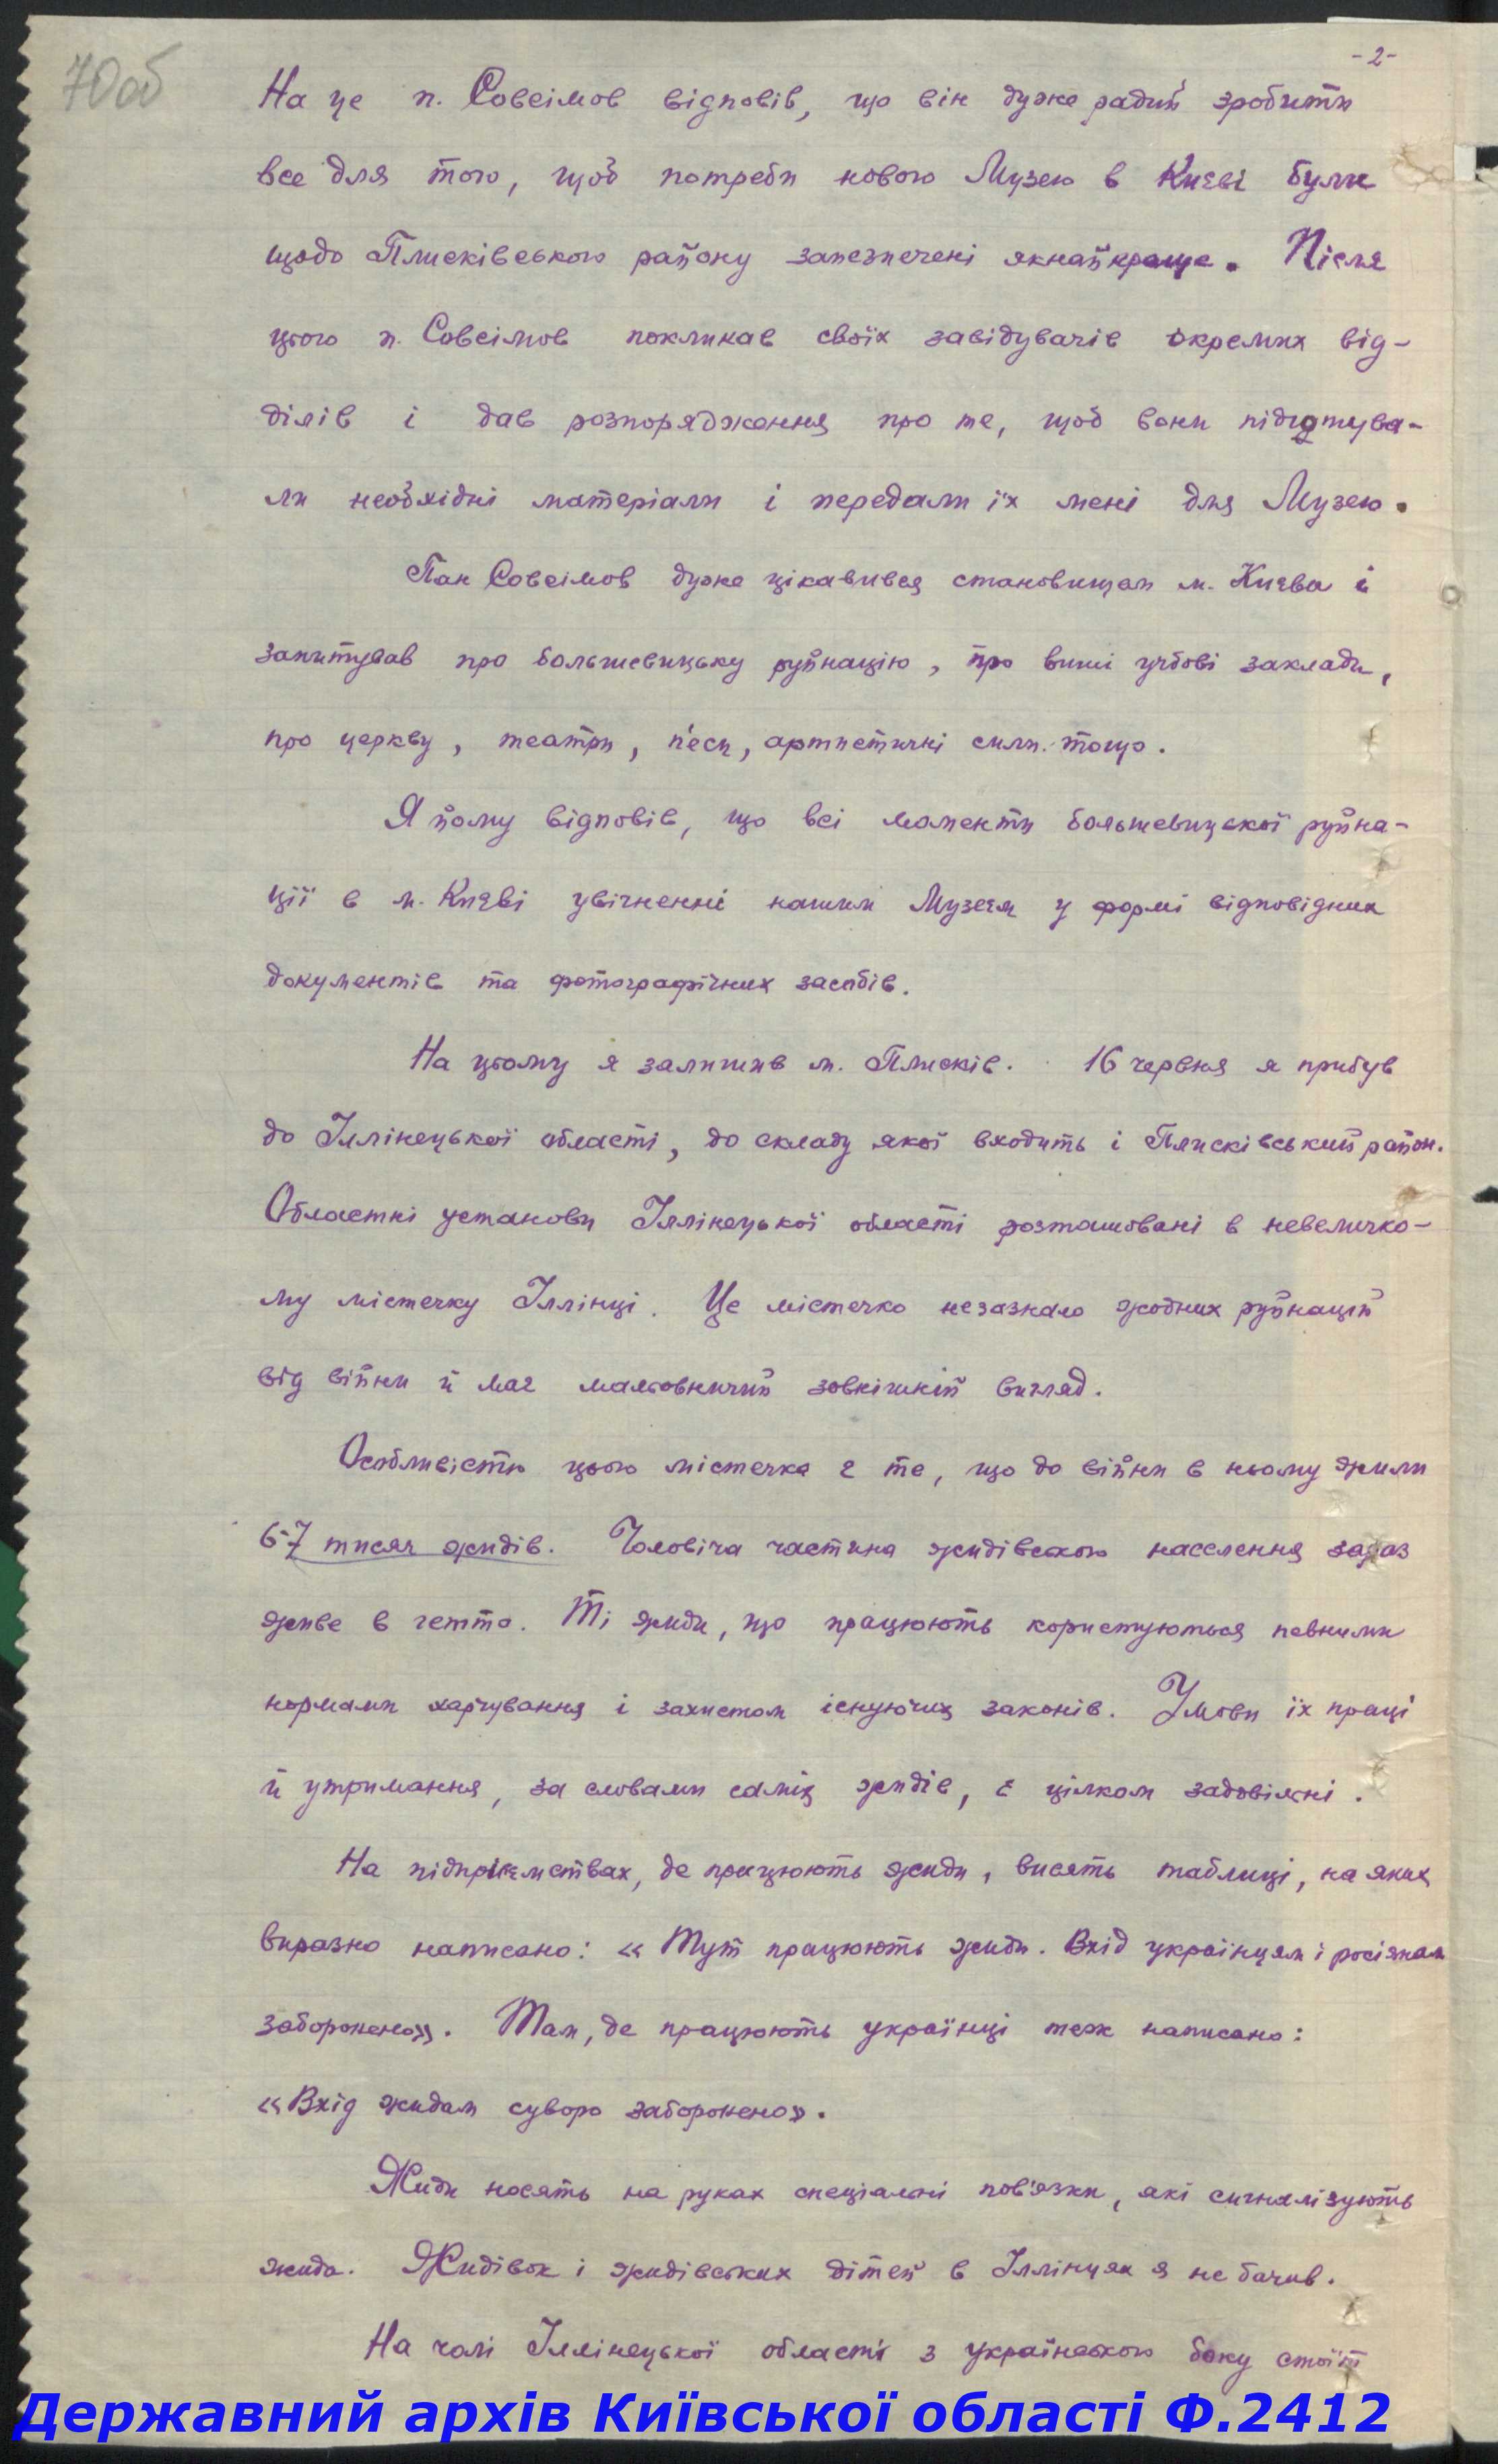 70об
-2-
На це п. Совсімов відповів, що він дуже радий зробити
все для того, щоб потреби нового Музею в Києві були
щодо Плисківського району запезпечені якнайкраще. Після
цього п. Совсімов покликав своїх завідувачів окремих від-
ділів і дав розпорядження про те, щоб вони підготува-
ли необхідні матеріали і передали їх мені для Музею.
Пан Совсімов дуже цікавився становищем м. Києва і
запитував про большевицьку руйнацію, про вищі учбові заклади,
про церкву, театри, п'єси, артистичні сили тощо.
Я йому відповів, що всі моменти большевицької руйна-
ції в м. Києві увічненні нашим Музеєм у формі відповідних
документів та фотографічних засобів.
На цьому я залишив м. Плисків. 16 червня я прибув
до Іллінецької області, до складу якої входить і Плисківський район.
Обласні установи Іллінецької області розташовані в невеличко-
му містечку Іллінці. Це містечко незазнало жодних руйнацій
від війни й має мальовничий зовнішній вигляд.
Особливістю цього містечка є те, що до війни в ньому жили
6-7 тисяч жидів. Чоловіча частина жидівського населення зараз
живе в гетто. Ті жиди, що працюють користуються певними
нормами харчування і захистом існуючих законів. Умови їх праці
й утримання, за словами самих жидів, є цілком задовільні.
На підприємствах, де працюють жиди, висять таблиці, на яких
виразно написано: «Тут працюють жиди. Вхід українцям і росіянам
заборонено». Там, де працюють українці теж написано:
«Вхід жидам суворо заборонено».
Жиди носять на руках спеціальні пов'язки, які сигналізують
жида. Жидівок і жидівських дітей в Іллінцях я не бачив.
На чолі Іллінецької області з українського боку стоїть
Державний архів Київської області Ф.2412